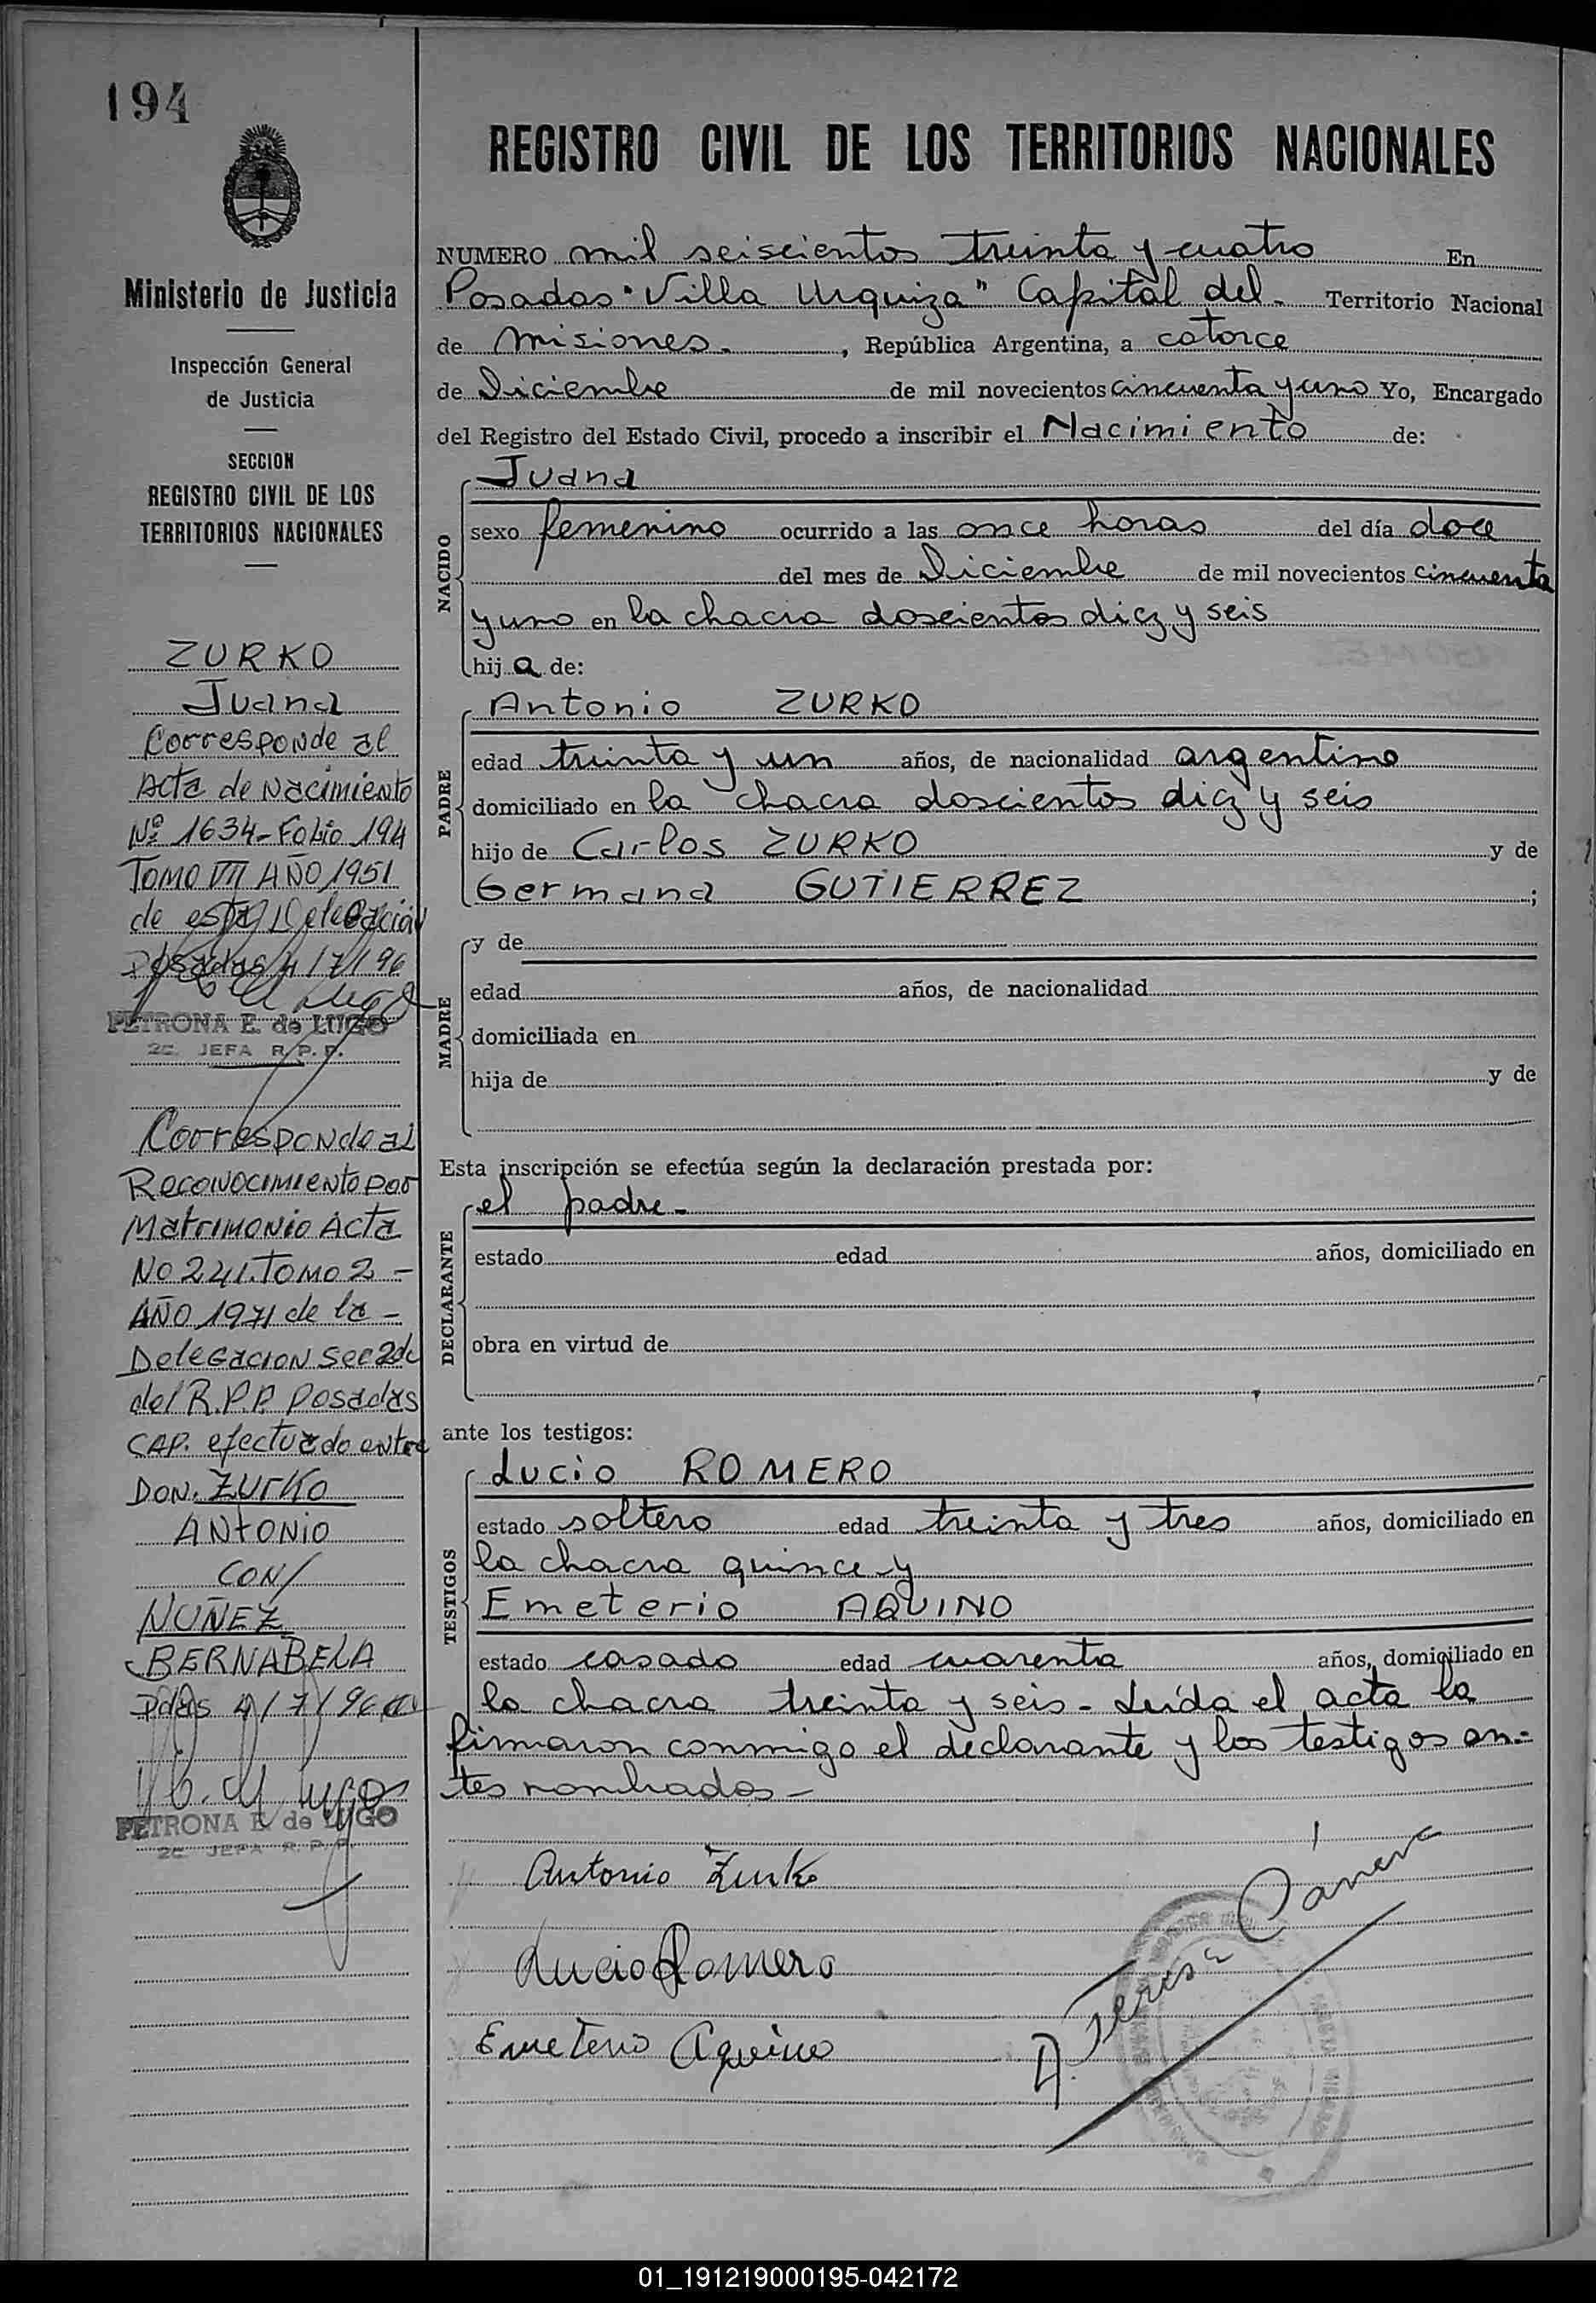 194
Ministerio de Justicia
Inspección General
de Justicia
SECCION
REGISTRO CIVIL DE LOS
TERRITORIOS NACIONALES
ZURKO
Juana
Corresponde al
Acta de Nacimiento
Nº 1634-Folio 194
Tomo VII AÑO 1951
de esta Delegación
Posadas 4/7/96
PETRONA E. de LUGO
2c. JEFA R.P.P.
Corresponde al
Reconocimiento por
Matrimonio Acta
No 241. Tomo 2 -
AÑO 1971 de la -
Delegacion Sec 2da
del R.P.P. Posadas
CAP. efectuado entre
DON. Zurko
ANtONiO
CON/
NUÑEZ
BERNABELA
Pdas 4/7/96
PETRONA E. de LUGO
2c. JEFA R.P.P.
REGISTRO CIVIL DE LOS TERRITORIOS NACIONALES
NUMERO mil seiscientos treinta y cuatro En
Posadas "Villa Urquiza" Capital del - Territorio Nacional
de Misiones -, República Argentina, a catorce
de Diciembre de mil novecientos cincuenta y uno Yo, Encargado
del Registro del Estado Civil, procedo a inscribir el Nacimiento de:
NACIDO
Juana
sexo femenino ocurrido a las once horas del día doce
del mes de Diciembre de mil novecientos cincuenta
y uno en la chacra doscientos diez y seis
hija de:
PADRE
Antonio ZURKO
edad treinta y un años, de nacionalidad argentino
domiciliado en la chacra doscientos diez y seis
hijo de Carlos ZURKO y de
Germana GUTIERREZ ;
MADRE
y de
edad años, de nacionalidad
domiciliada en
hija de y de
Esta inscripción se efectúa según la declaración prestada por:
DECLARANTE
el padre -
estado edad años, domiciliado en
obra en virtud de
ante los testigos:
TESTIGOS
Lucio ROMERO
estado soltero edad treinta y tres años, domiciliado en
la chacra quince y
Emeterio AQUINO
estado casado edad cuarenta años, domiciliado en
la chacra treinta y seis - Leída el acta la
firmaron conmigo el declarante y los testigos an-
tes nombrados -
Antonio Zurko
Lucio Romero
Emeterio Aquino
A. Teresa Cámera
01_191219000195-042172